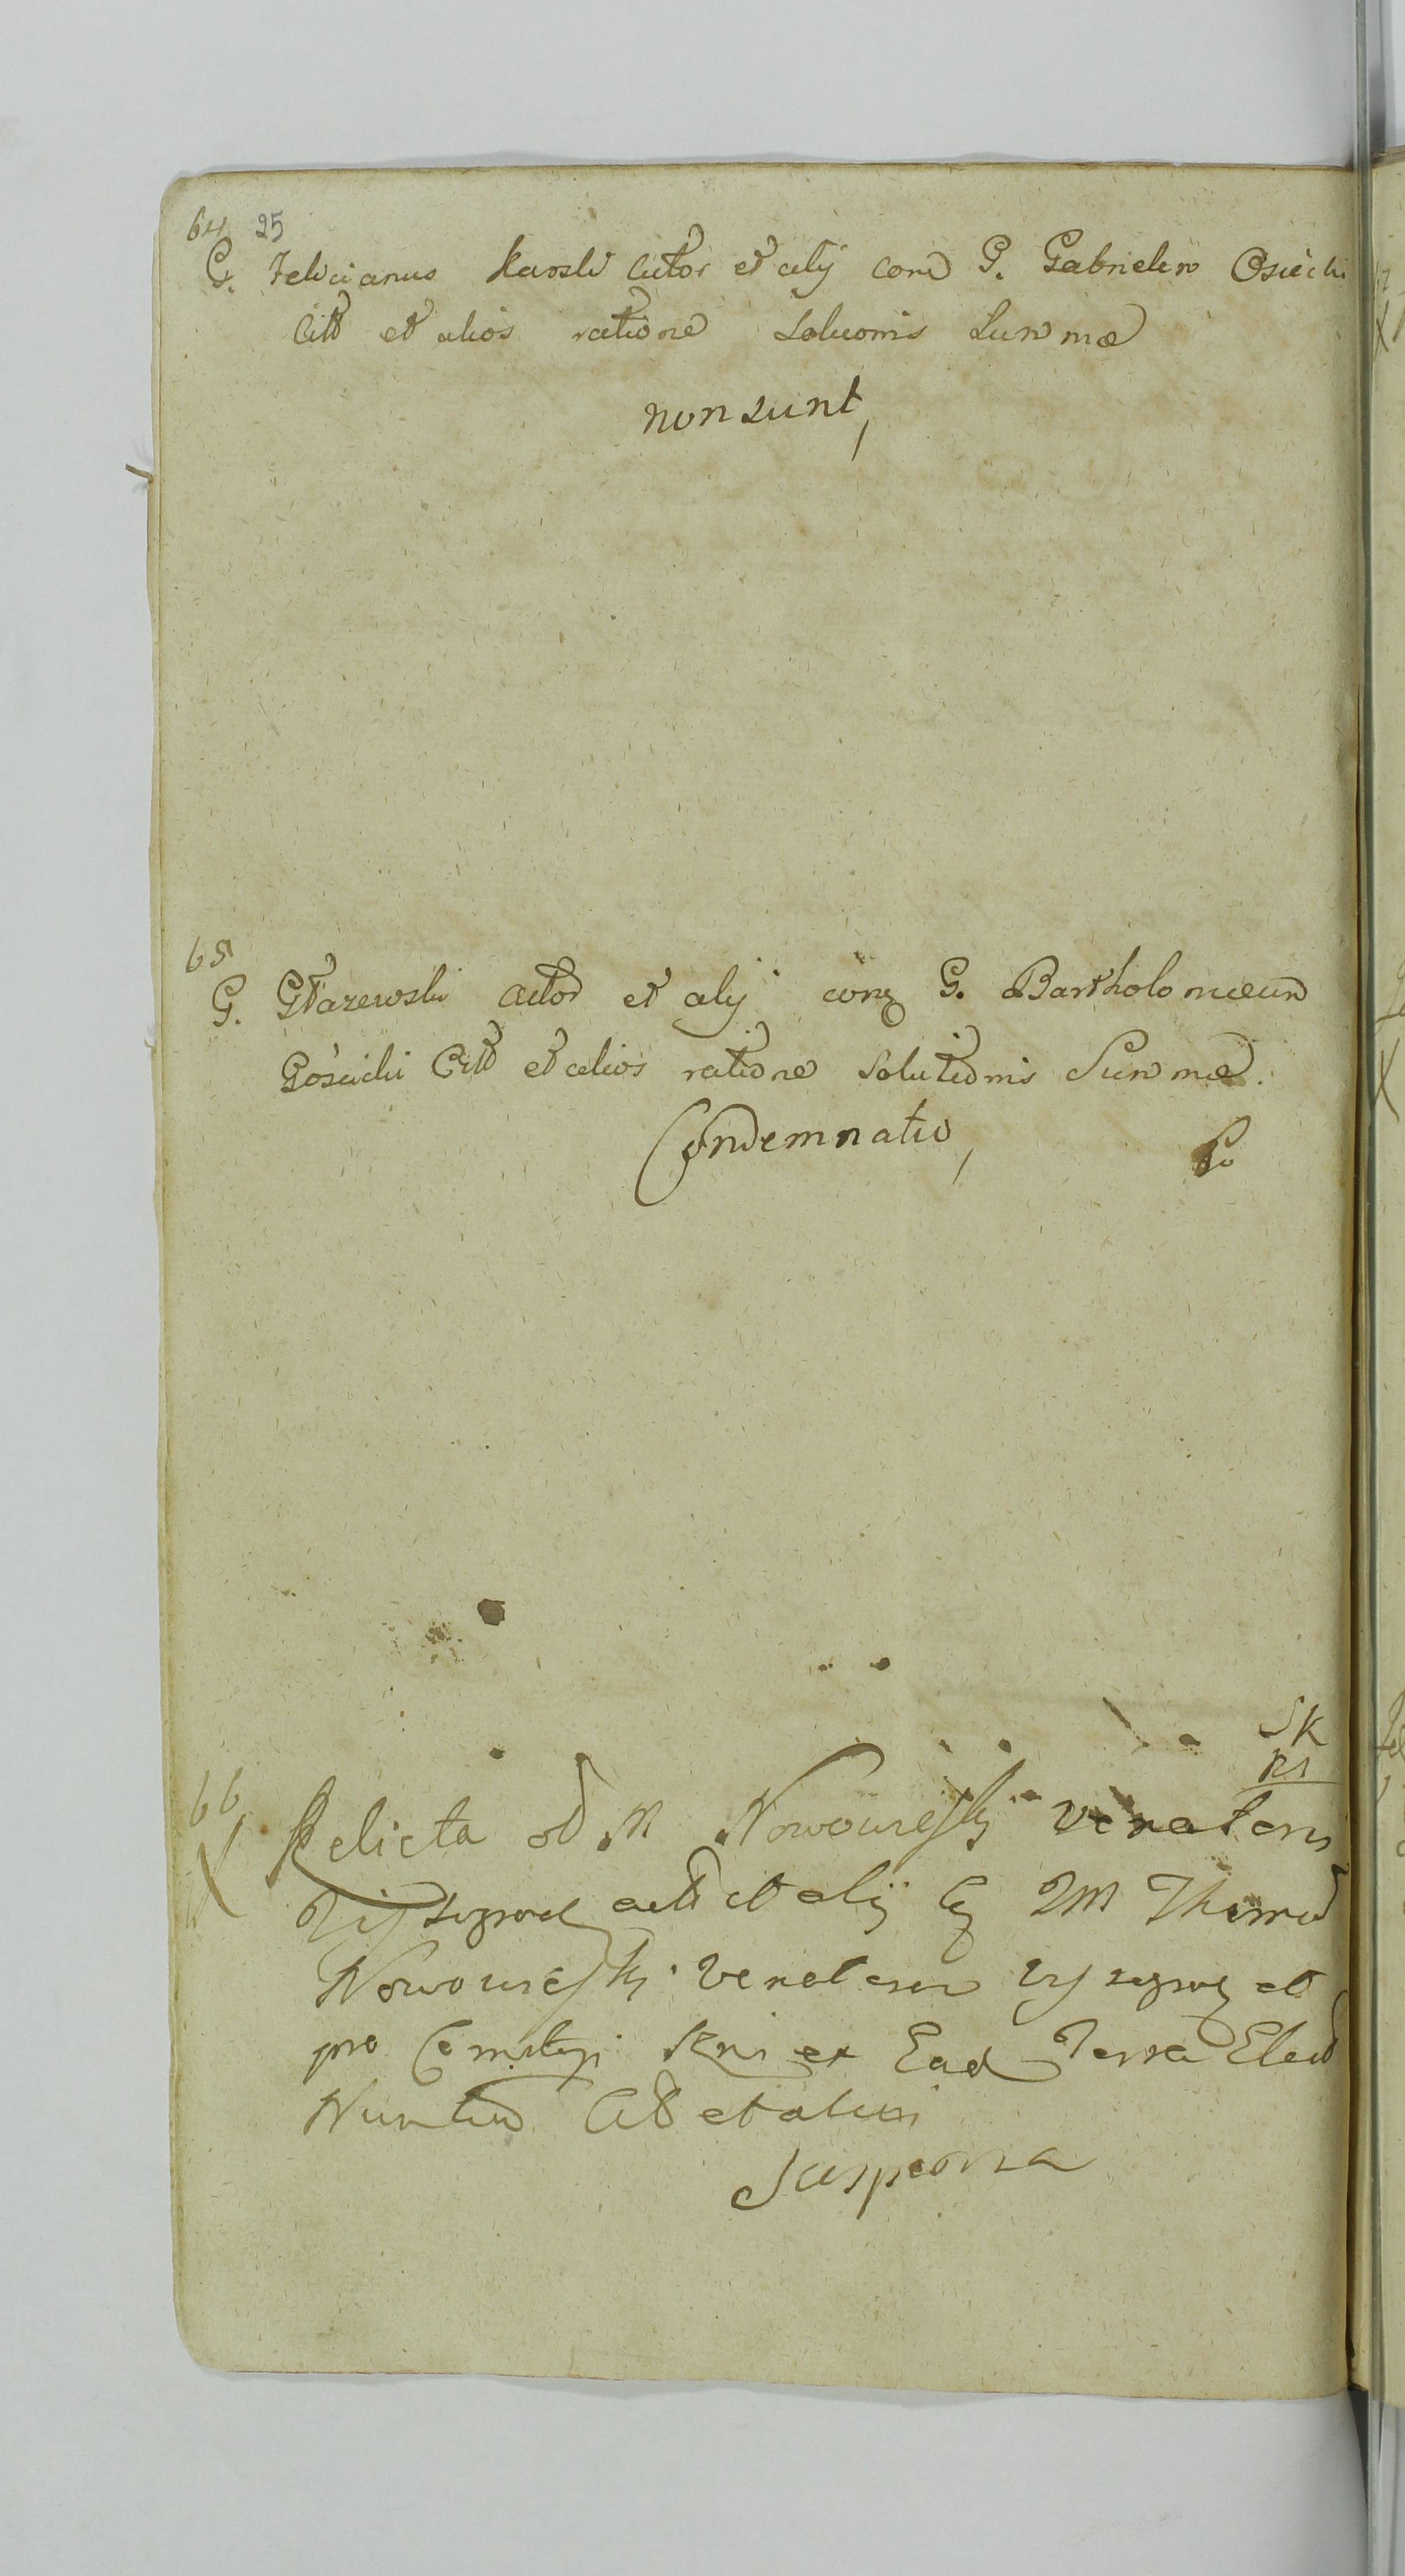 64 25
G. Felicianus Karski Actor et alij con̄ G. Gabrielem Osiecki
Citt et alios ratione Soluonis Summæ
non sunt,
65
G. Głazewski Actor et alij conq G. Bartholomæum
Gościcki Citt et alios ratione Solutionis Summæ.
Condemnatio,
SK
66
Relicta od M Nowowieyski Venatoris
Vissogrod act et alij cq M Thomam
Nowowieyski Venatorem Vyssogrod et
pro Comitijs Rni ex Ead Terra Elect
Nuntium Citt et alios
Suspensa